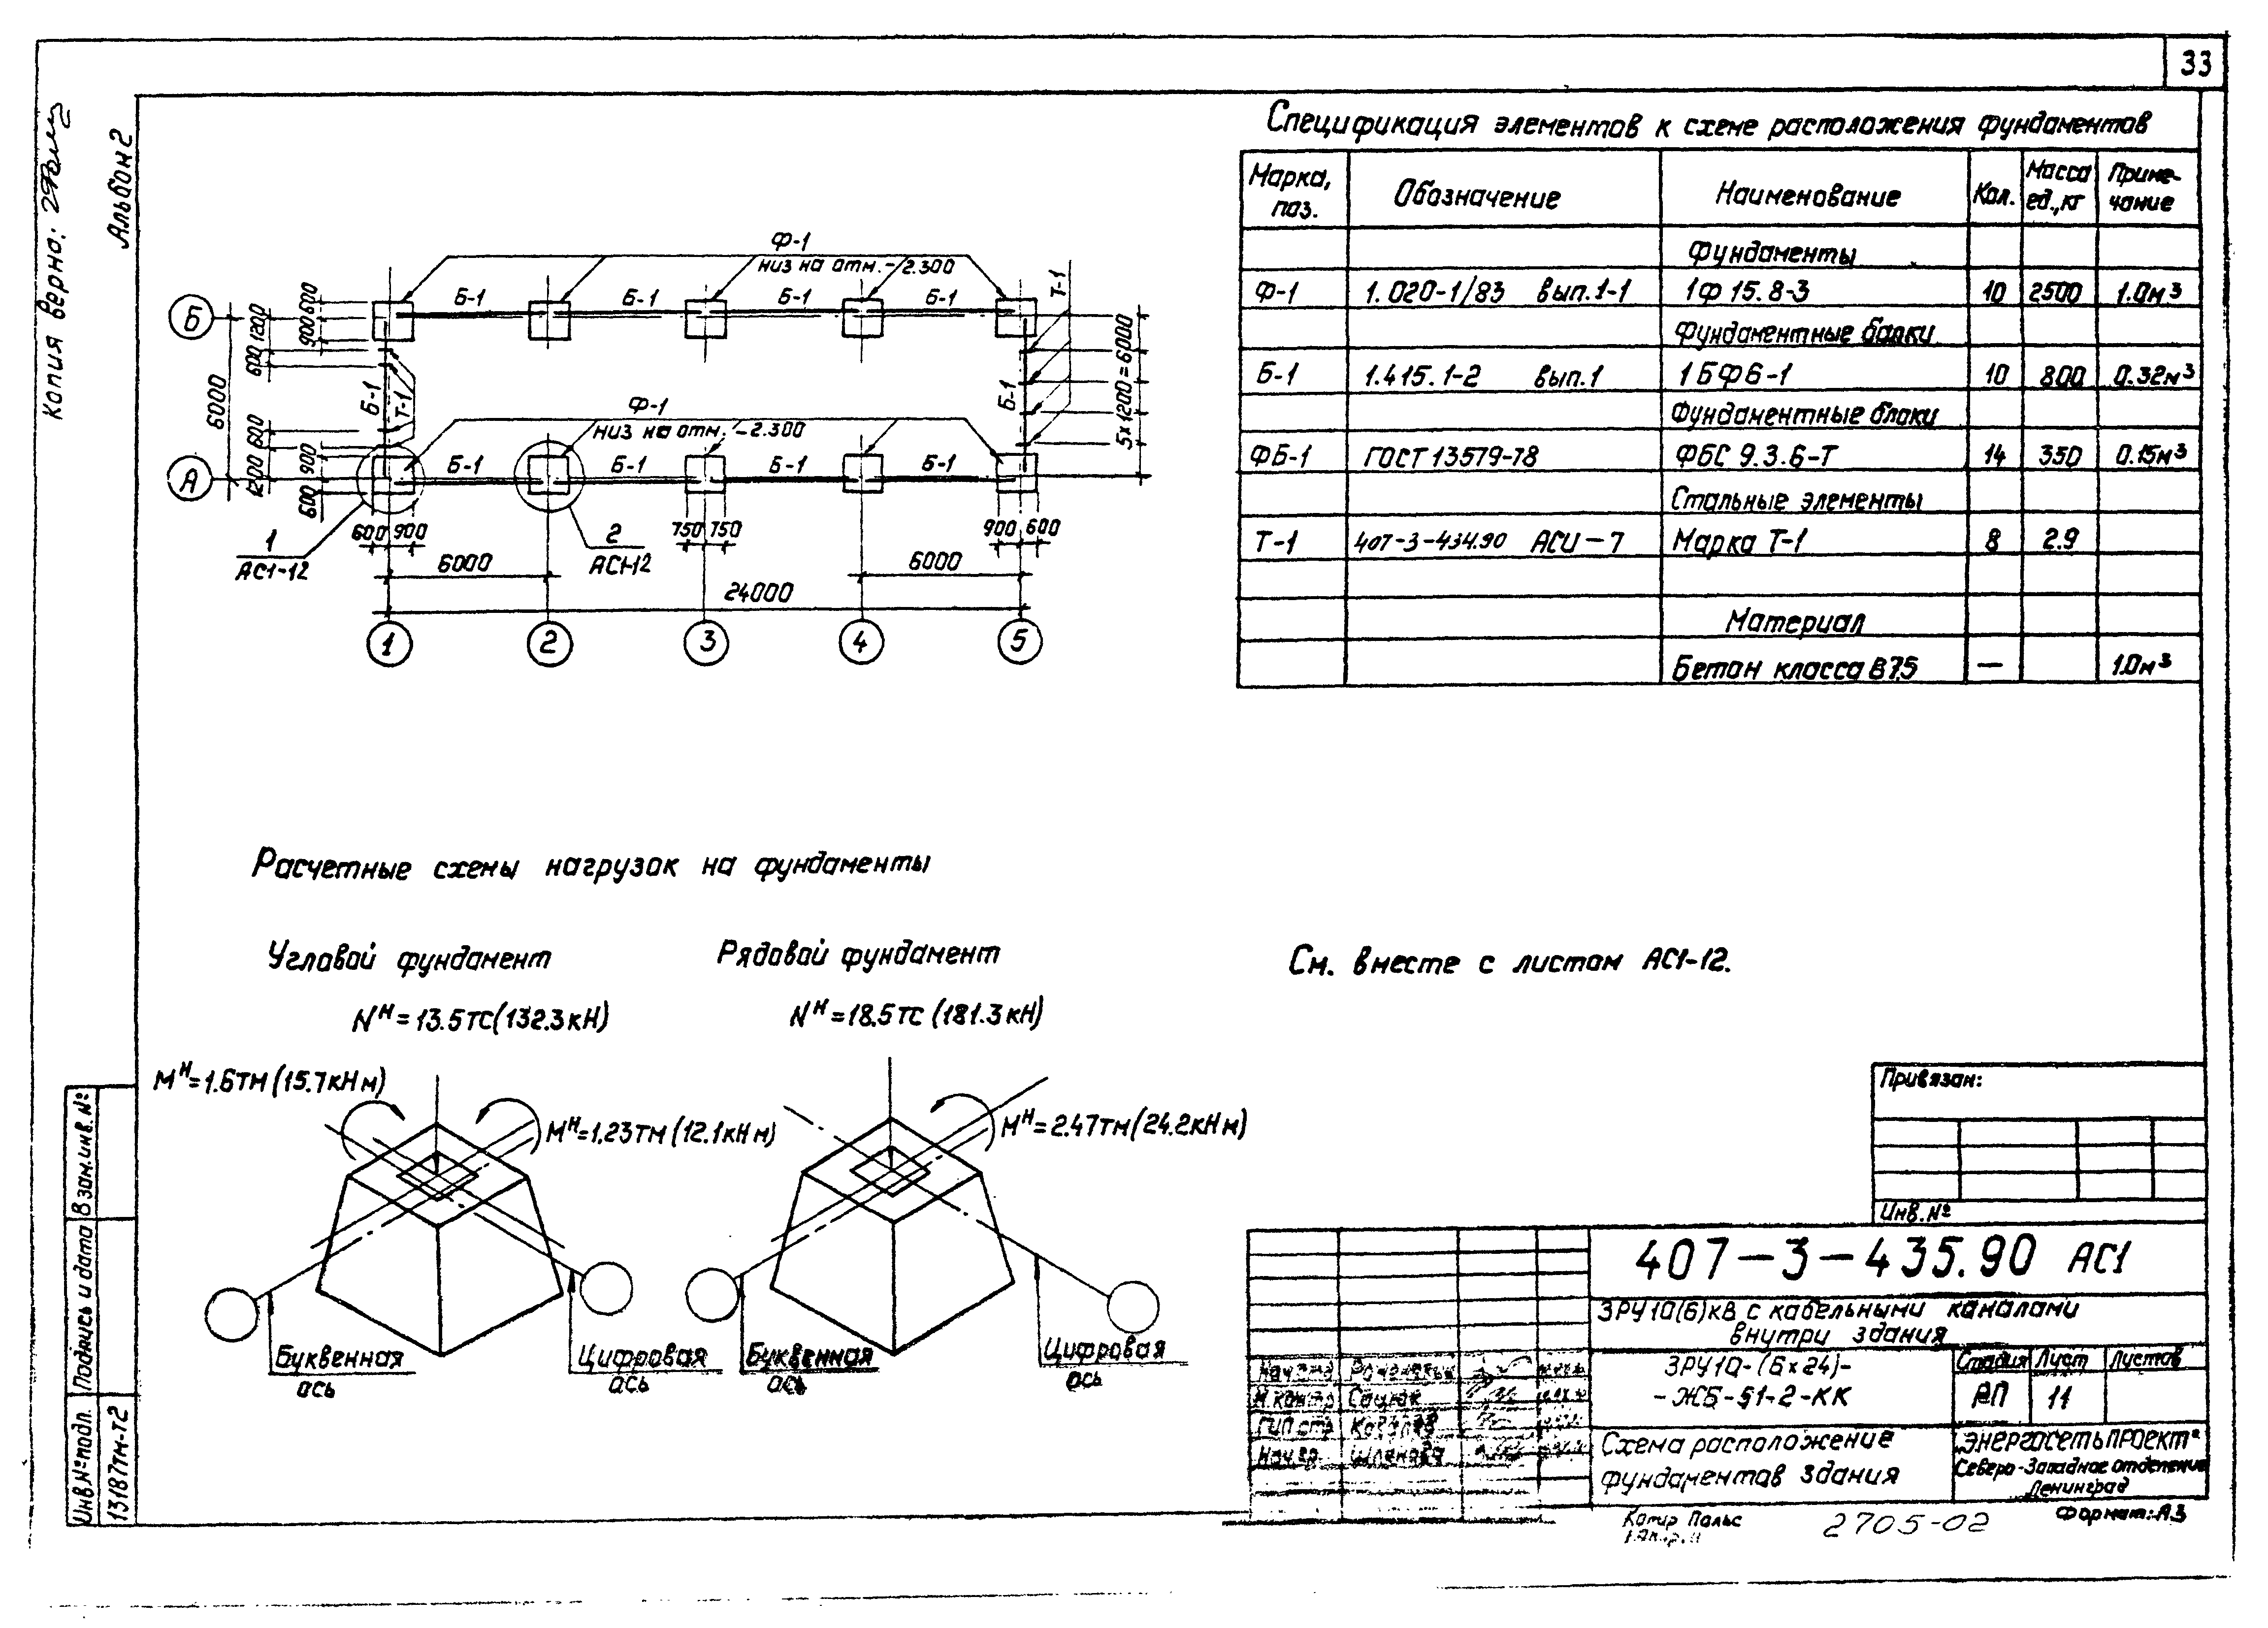 33
Копия верна:
Альбом 2
Спецификация элементов к схеме расположения фундаментов
Марка, поз. Обозначение Наименование Кол. Масса ед., кг Приме-чание
Фундаменты
Ф-1 1.020-1/83 вып.1-1 1Ф 15.8-3 10 2500 1.0м³
Фундаментные балки
Б-1 1.415.1-2 вып.1 1БФ6-1 10 800 0.32м³
Фундаментные блоки
ФБ-1 ГОСТ 13579-78 ФБС 9.3.6-Т 14 350 0.15м³
Стальные элементы
Т-1 407-3-434.90 АСИ-7 Марка Т-1 8 2.9
Материал
Бетон класса В7.5 — 1.0м³
Ф-1
низ на отм. -2.300
Б-1 Б-1 Б-1 Б-1
Т-1
Б
600
900
1200
600
6000
Б-1
Т-1
Б-1
5х1200=6000
Ф-1
низ на отм. -2.300
Б-1 Б-1 Б-1 Б-1
А
600
1200
900
600
600 900
750 750
900 600
1
АС1-12
2
АС1-12
6000
6000
24000
1 2 3 4 5
Расчетные схемы нагрузок на фундаменты
Угловой фундамент
Nᴴ=13.5тс(132.3кН)
Мᴴ=1.6тм(15.7кНм)
Мᴴ=1.23тм(12.1кНм)
Буквенная ось
Цифровая ось
Рядовой фундамент
Nᴴ=18.5тс(181.3кН)
Мᴴ=2.47тм(24.2кНм)
Буквенная ось
Цифровая ось
См. вместе с листом АС1-12.
Привязан:
Инв.№
407-3-435.90 АС1
ЗРУ10(6)кВ с кабельными каналами
внутри здания
ЗРУ10-(6х24)-
-ЖБ-51-2-КК
Стадия Лист Листов
РП 11
Схема расположение
фундаментов здания
„Энергосетьпроект"
Северо-Западное отделение
Ленинград
Н.контр
ГИП стр Ковалев
Нач.гр. Шленова
Копир Пальс
2705-02
Формат: А3
Взам.инв.№
Подпись и дата
Инв.№подл.
13187тм-т2